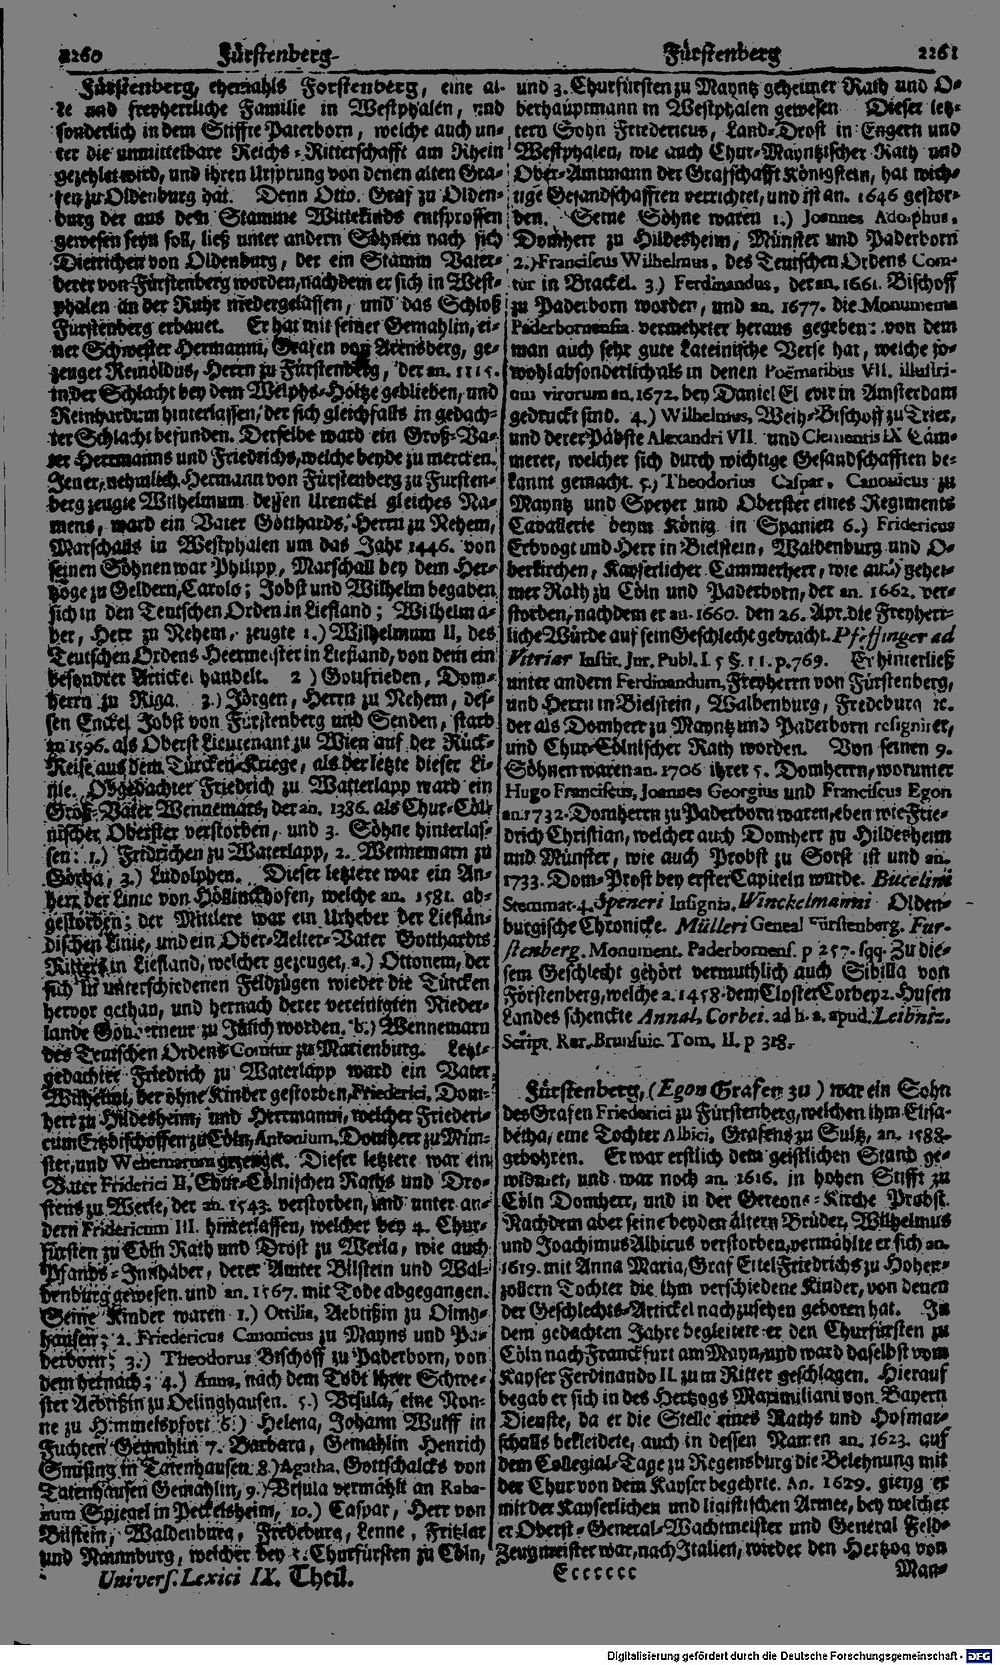 2260 Fürstenberg
Fürstenberg 2261
Fürstenberg, ehemahls Forstenberg, eine al-
te und freyherrliche Familie in Westphalen, und
sonderlich in dem Stiffte Paterborn, welche auch un-
ter die unmittelbare Reichs-Ritterschafft am Rhein
gezehlet wird, und ihren Ursprung von denen alten Gra-
fen zu Oldenburg hat. Denn Otto Graf zu Olden-
burg der aus dem Stamme Wittekinds entsprossen
gewesen seyn soll, ließ unter andern Söhnen nach sich
Dietrichen von Oldenburg, der ein Stamm Vater
derer von Fürstenberg worden, nachdem er sich in West-
phalen an der Ruhr niedergelassen, und das Schloß
Fürstenberg erbauet. Er hat mit seiner Gemahlin, ei-
ner Schwester Hermanni, Grafen von Arensberg, ge-
zeuget Reinoldus, Herrn zu Fürstenberg, der an. 1115.
in der Schlacht bey dem Welphs-Holtze geblieben, und
Reinhardum hinterlassen, der sich gleichfalls in gedach-
ter Schlacht befunden. Derselbe ward ein Groß-Va-
ter Herrmanns und Friedrichs, welche beyde zu mercken.
Jener, nehmlich Hermann von Fürstenberg zu Fürsten-
berg zeugte Wilhelmum dessen Urenckel gleiches Na-
mens, ward ein Vater Gotthards, Herrn zu Nehem,
Marschalls in Westphalen um das Jahr 1446. von
seinen Söhnen war Philipp, Marschall bey dem Her-
tzoge zu Geldern, Carolo; Jobst und Wilhelm begaben
sich in den Teutschen Orden in Liefland; Wilhelm a-
ber, Herr zu Nehem, zeugte 1.) Wilhelmum II, des
Teutschen Ordens Heermeister in Liefland, von dem ein
besondrer Artickel handelt. 2) Gottfrieden, Dom-
herrn zu Riga. 3.) Jörgen, Herrn zu Nehem, des-
sen Enckel Jobst von Fürstenberg und Senden, starb
an 1596. als Oberst Lieutenant zu Wien auf der Rück-
Reise aus dem Türcken-Kriege, als der letzte dieser Li-
nie. Obgedachter Friedrich zu Watterlapp ward ein
Groß-Vater Wennemars, der an. 1386. als Chur-Cöl-
nischer Oberster verstorben, und 3. Söhne hinterlas-
sen: 1.) Fridrichen zu Waterlapp, 2. Wennemarn zu
Görba, 3.) Ludolphen. Dieser letztere war ein An-
herr der Linie von Höllinckhofen, welche an. 1581. ab-
gestorben; der Mittlere war ein Urheber der Lieflän-
dischen Linie, und ein Ober-Aelter-Vater Gotthardts
Ritters in Liefland, welcher gezeuget, a.) Ottonem, der
sich in unterschiedenen Feldzügen wieder die Türcken
hervor gethan, und hernach derer vereinigten Nieder-
lande Gouverneur zu Jülich worden. b.) Wennemarn
des Teutschen Ordens Comtur zu Marienburg. Letzt-
gedachter Friedrich zu Waterlapp ward ein Vater
Wilhelmi, der ohne Kinder gestorben, Friderici, Dom-
herr zu Hildesheim, und Herrmanni, welcher Friederi-
cum Ertzbischoffen zu Cöln, Antonium, Domherr zu Mün-
ster, und Wehemarum gezeuget. Dieser letztere war ein
Vater Friderici II, Chur-Cölnischen Raths und Dro-
stens zu Werle, der an. 1543. verstorben, und unter an-
dern Fridericum III. hinterlassen, welcher bey 4. Chur-
fürsten zu Cöln Rath und Drost zu Werla, wie auch
Pfands-Innhaber, derer Amter Bilstein und Wal-
denburg gewesen, und an. 1567. mit Tode abgegangen.
Seine Kinder waren 1.) Ottilia, Aebtißin zu Olmg-
hausen; 2. Fridericus Canonicus zu Mayns und Pa-
derborn; 3.) Theodorus Bischoff zu Paderborn, von
dem hernach; 4.) Anna, nach dem Todt ihrer Schwe-
ster Aebtißin zu Oelinghausen. 5.) Ursula, eine Non-
ne zu Himmelspfort 6.) Helena, Johann Wulff in
Fuchten Gemahlin 7. Barbara, Gemahlin Henrich
Smising in Tatenhausen 8.) Agatha, Gottschalcks von
Tatenhausen Gemahlin, 9.) Ursula vermählt an Raba-
num Spiegel in Peckelsheim, 10.) Caspar, Herr von
Bilstein, Waldenburg, Fredeburg, Lenne, Fritzlar
und Naumburg, welcher bey Churfürsten zu Cöln,
und 3. Churfürsten zu Mayntz geheimer Rath und O-
berhauptmann in Westphalen gewesen Dieser letz-
tern Sohn Friedericus, Land-Drost in Engern und
Westphalen, wie auch Chur-Mayntzischer Rath und
Ober-Amtmann der Grafschafft Königstein, hat wich-
tige Gesandschafften verrichtet, und ist an. 1646 gestor-
ben. Seine Söhne waren 1.) Joannes Adolphus,
Domherr zu Hildesheim, Münster und Paderborn
2.) Franciscus Wilhelmus, des Teutschen Ordens Com-
tur in Brackel. 3.) Ferdinandus, der an. 1661. Bischoff
zu Paderborn worden, und an. 1677. die Monumenta
Paderbornensia vermehrter heraus gegeben: von dem
man auch sehr gute Lateinische Verse hat, welche so-
wohl absonderlich als in denen Poëmatibus VII. illustri-
um virorum an. 1672. bey Daniel Elzevir in Amsterdam
gedruckt sind. 4.) Wilhelmus, Weih-Bischoff zu Trier,
und derer Päbste Alexandri VII. und Clementis IX Cäm-
merer, welcher sich durch wichtige Gesandschafften be-
kannt gemacht. 5.) Theodorius Caspar, Canonicus zu
Mayntz und Speyer und Oberster eines Regiments
Cavallerie beym König in Spanien 6.) Fridericus
Erbvogt und Herr in Bielstein, Waldenburg und O-
berkirchen, Kayserlicher Cammerherr, wie auch gehei-
mer Rath zu Cöln und Paderborn, der an. 1662. ver-
storben, nachdem er an. 1660. den 26. Apr. die Freyherr-
liche Würde auf sein Geschlecht gebracht. Pfeffinger ad
Vitriar Instit. Jur. Publ. I. 5 §. 11. p. 769. Er hinterließ
unter andern Ferdinandum, Freyherrn von Fürstenberg,
und Herrn in Bielstein, Walbenburg, Fredeburg ꝛc.
der als Domherr zu Mayntz und Paderborn resigniret,
und Chur-Cölnischer Rath worden. Von seinen 9.
Söhnen waren an. 1706 ihrer 5. Domherrn, worunter
Hugo Franciscus, Joannes Georgius und Franciscus Egon
an. 1732. Domherrn zu Paderborn waren, eben wie Frie-
drich Christian, welcher auch Domherr zu Hildesheim
und Münster, wie auch Probst zu Sorst ist und an.
1733. Dom-Prost bey erster Capiteln wurde. Bucelini
Stemmat. 4. Speneri Insignia, Winckelmanni Olden-
burgische Chronicke. Mülleri Geneal Fürstenberg. Fur-
stenberg. Monument. Paderbornens. p 257. sqq. Zu die-
sem Geschlecht gehört vermuthlich auch Sibilla von
Förstenberg, welche a. 1458. dem Closter Corbey 2. Hufen
Landes schenckte Annal. Corbei. ad h. a. apud. Leibniz.
Script. Rer. Brunsuic. Tom. II. p 318.
Fürstenberg, (Egon Grafen zu) war ein Sohn
des Grafen Friederici zu Fürstenberg, welchen ihm Elisa-
betha, eine Tochter Albici, Grafens zu Sultz, an. 1588.
gebohren. Er war erstlich dem geistlichen Stand ge-
widmet, und war noch an. 1616. in hohen Stifft zu
Cöln Domherr, und in der Gereons-Kirche Probst.
Nachdem aber seine beyden ältern Brüder, Wilhelmus
und Joachimus Albicus verstorben, vermählte er sich an.
1619. mit Anna Maria, Graf Eitel Friedrichs zu Hohen-
zollern Tochter die ihm verschiedene Kinder, von denen
der Geschlechts-Artickel nachzusehen geboren hat. In
dem gedachten Jahre begleitete er den Churfürsten zu
Cöln nach Franckfurt am Mayn, und ward daselbst vom
Kayser Ferdinando II. zum Ritter geschlagen. Hierauf
begab er sich in des Hertzogs Maximiliani von Bayern
Dienste, da er die Stelle eines Raths und Hofmar-
schalls bekleidete, auch in dessen Namen an. 1623. auf
dem Collegial-Tage zu Regensburg die Belehnung mit
der Chur von dem Kayser begehrte. An. 1629. gieng er
mit der Kayserlichen und ligistischen Armee, bey welcher
er Oberst-General-Wachtmeister und General Feld-
Zeugmeister war, nach Italien, wieder den Hertzog von
Univers. Lexici IX. Theil.
Ccccccc
Man-
Digitalisierung gefördert durch die Deutsche Forschungsgemeinschaft - DFG